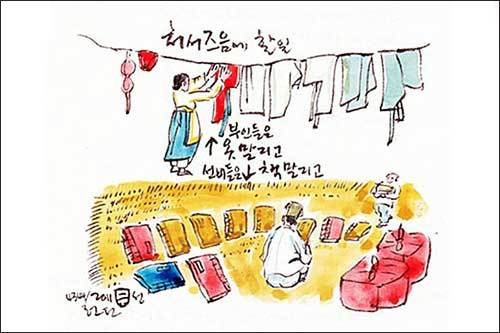 처서즈음에 할일
부인들은
↑ 옷말리고
선비들은↓ 책말리고